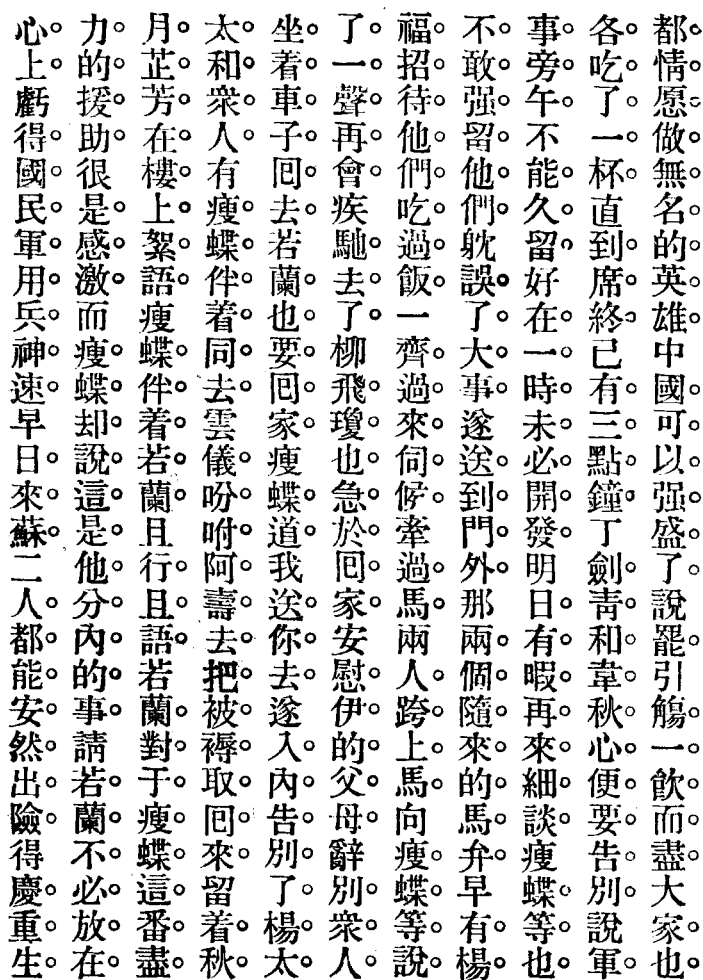 都情愿做無名的英雄中國可以强盛了說罷引觴一飲而盡大家也
各吃了一杯直到席終已有三點鐘丁劍青和韋秋心便要告別說軍
事旁午不能久留好在一時未必開發明日有暇再來細談瘦蝶等也
不敢强留他們躭誤了大事遂送到門外那兩個隨來的馬弁早有楊
福招待他們吃過飯一齊過來伺候牽過馬兩人跨上馬向瘦蝶等說
了一聲再會疾馳去了柳飛瓊也急於囘家安慰伊的父母辭別衆人
坐着車子囘去若蘭也要囘家瘦蝶道我送你去遂入內告別了楊太
太和衆人有瘦蝶伴着同去雲儀吩咐阿壽去把被褥取囘來留着秋
月芷芳在樓上絮語瘦蝶伴着若蘭且行且語若蘭對于瘦蝶這番盡
力的援助很是感激而瘦蝶却說這是他分內的事請若蘭不必放在
心上虧得國民軍用兵神速早日來蘇二人都能安然出險得慶重生